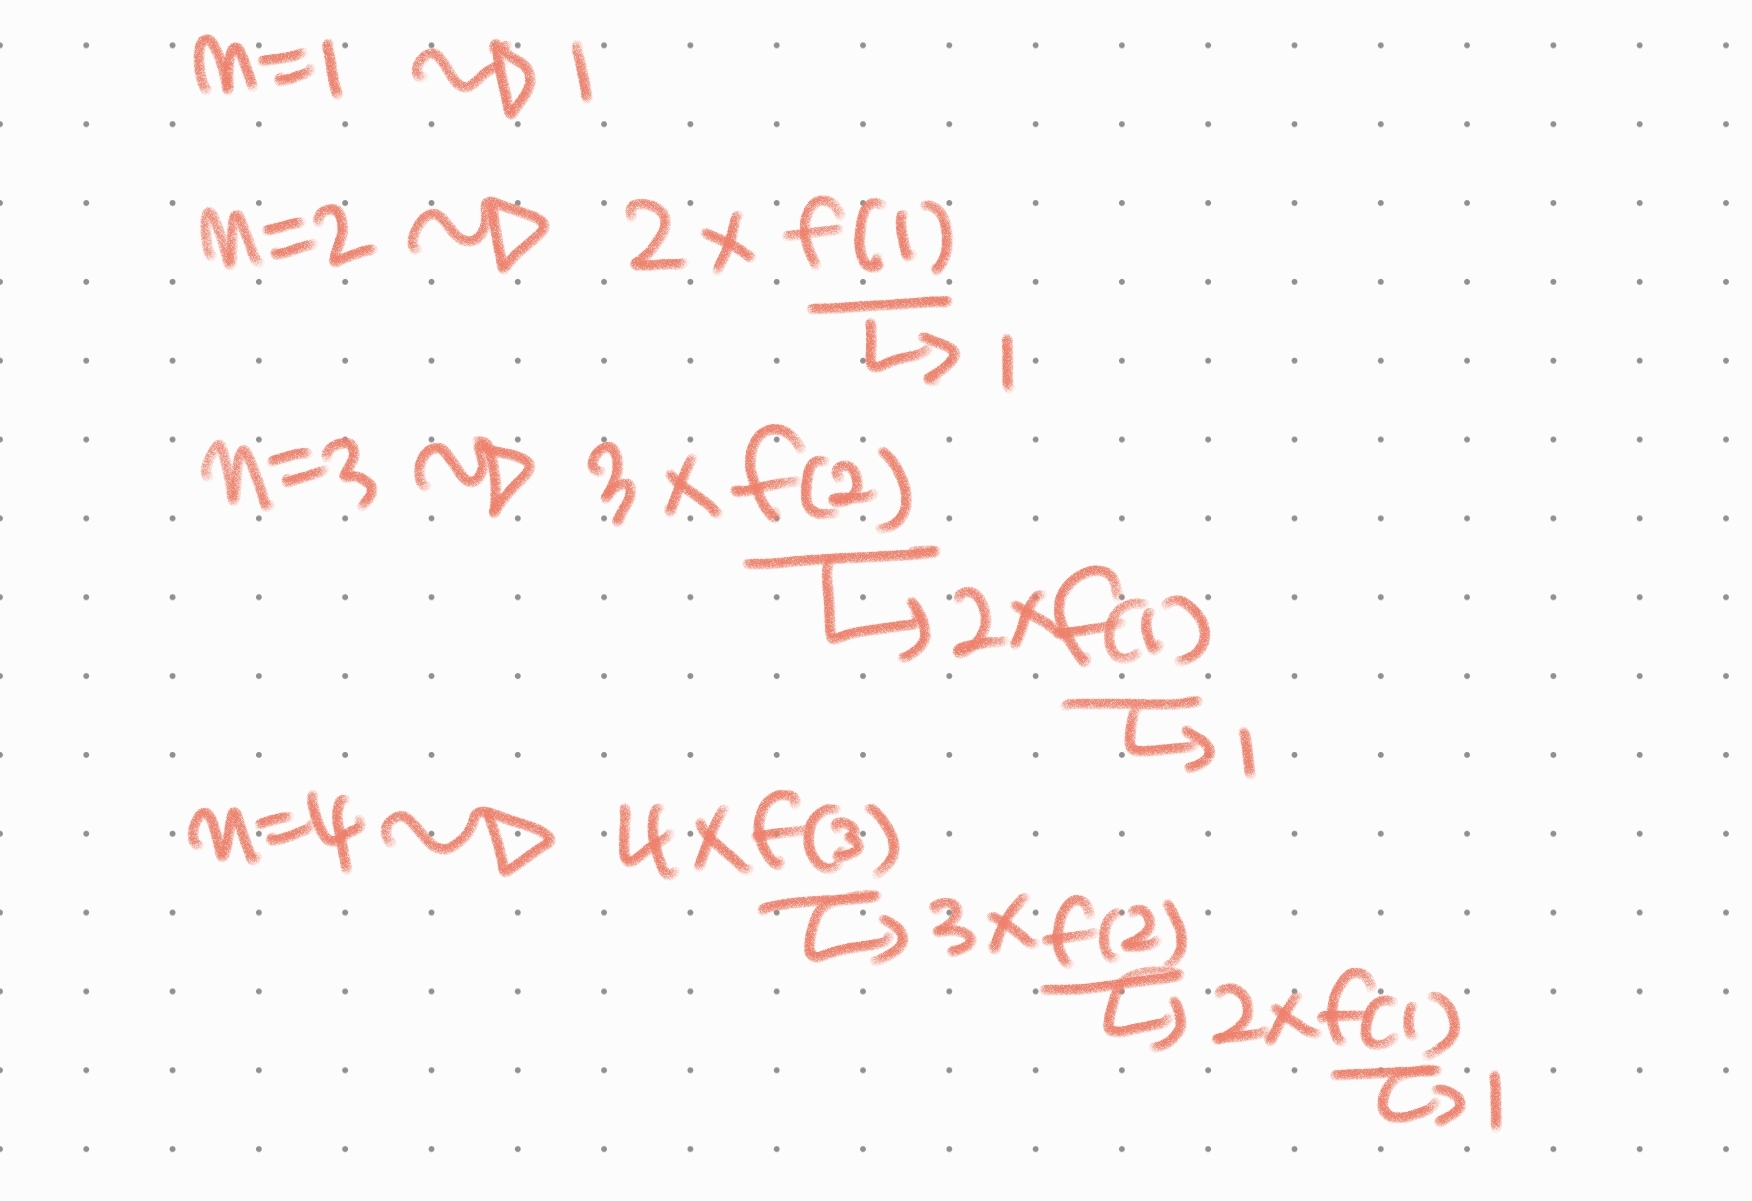 n=1 ⇝ 1
n=2 ⇝ 2 × f(1)
↳ 1
n=3 ⇝ 3 × f(2)
↳ 2 × f(1)
↳ 1
n=4 ⇝ 4 × f(3)
↳ 3 × f(2)
↳ 2 × f(1)
↳ 1